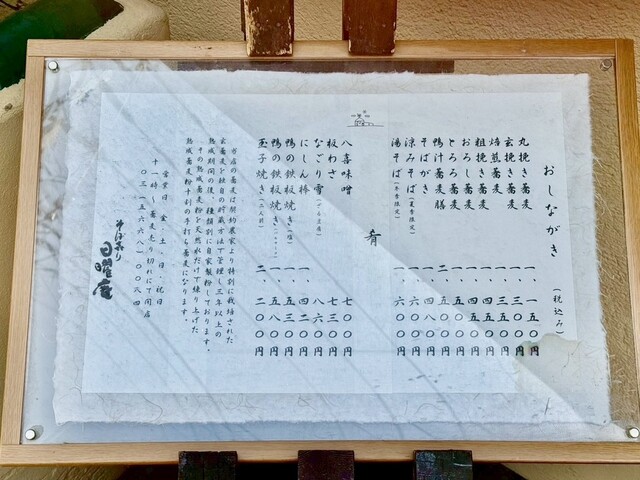 おしながき (税込み)
丸挽き蕎麦 一、一五〇円
玄挽き蕎麦 一、三〇〇円
焙煎蕎麦 一、三五〇円
粗挽き蕎麦 一、四五〇円
おろし蕎麦 一、四五〇円
とろろ蕎麦 一、五〇〇円
鴨汁蕎麦膳 二、五〇〇円
そばがき 一、四八〇円
涼みそば(夏季限定) 一、五〇〇円
湯そば(冬季限定) 一、六〇〇円
肴
八喜味噌 七〇〇円
板わさ 七三〇円
なごり雪(ざる豆腐) 八六〇円
にしん棒 一、四二〇円
鴨の鉄板焼き(塩) 一、五三〇円
鴨の鉄板焼き 一、五八〇円
玉子焼き(二人前) 二、二〇〇円
当店の蕎麦は契約農家より特別に栽培された
玄蕎麦を独自の貯蔵方法で管理し三年以上の
熟成期間の後、種類別に自家製粉しております。
その熟成蕎麦粉を天然水だけで練り上げた
熟成蕎麦粉十割の手打ち蕎麦になります。
営業日 金、土、日、祝日
十一時〜蕎麦売り切れにて閉店
〇三-五六六八-〇〇八四
そばきり
日曜庵